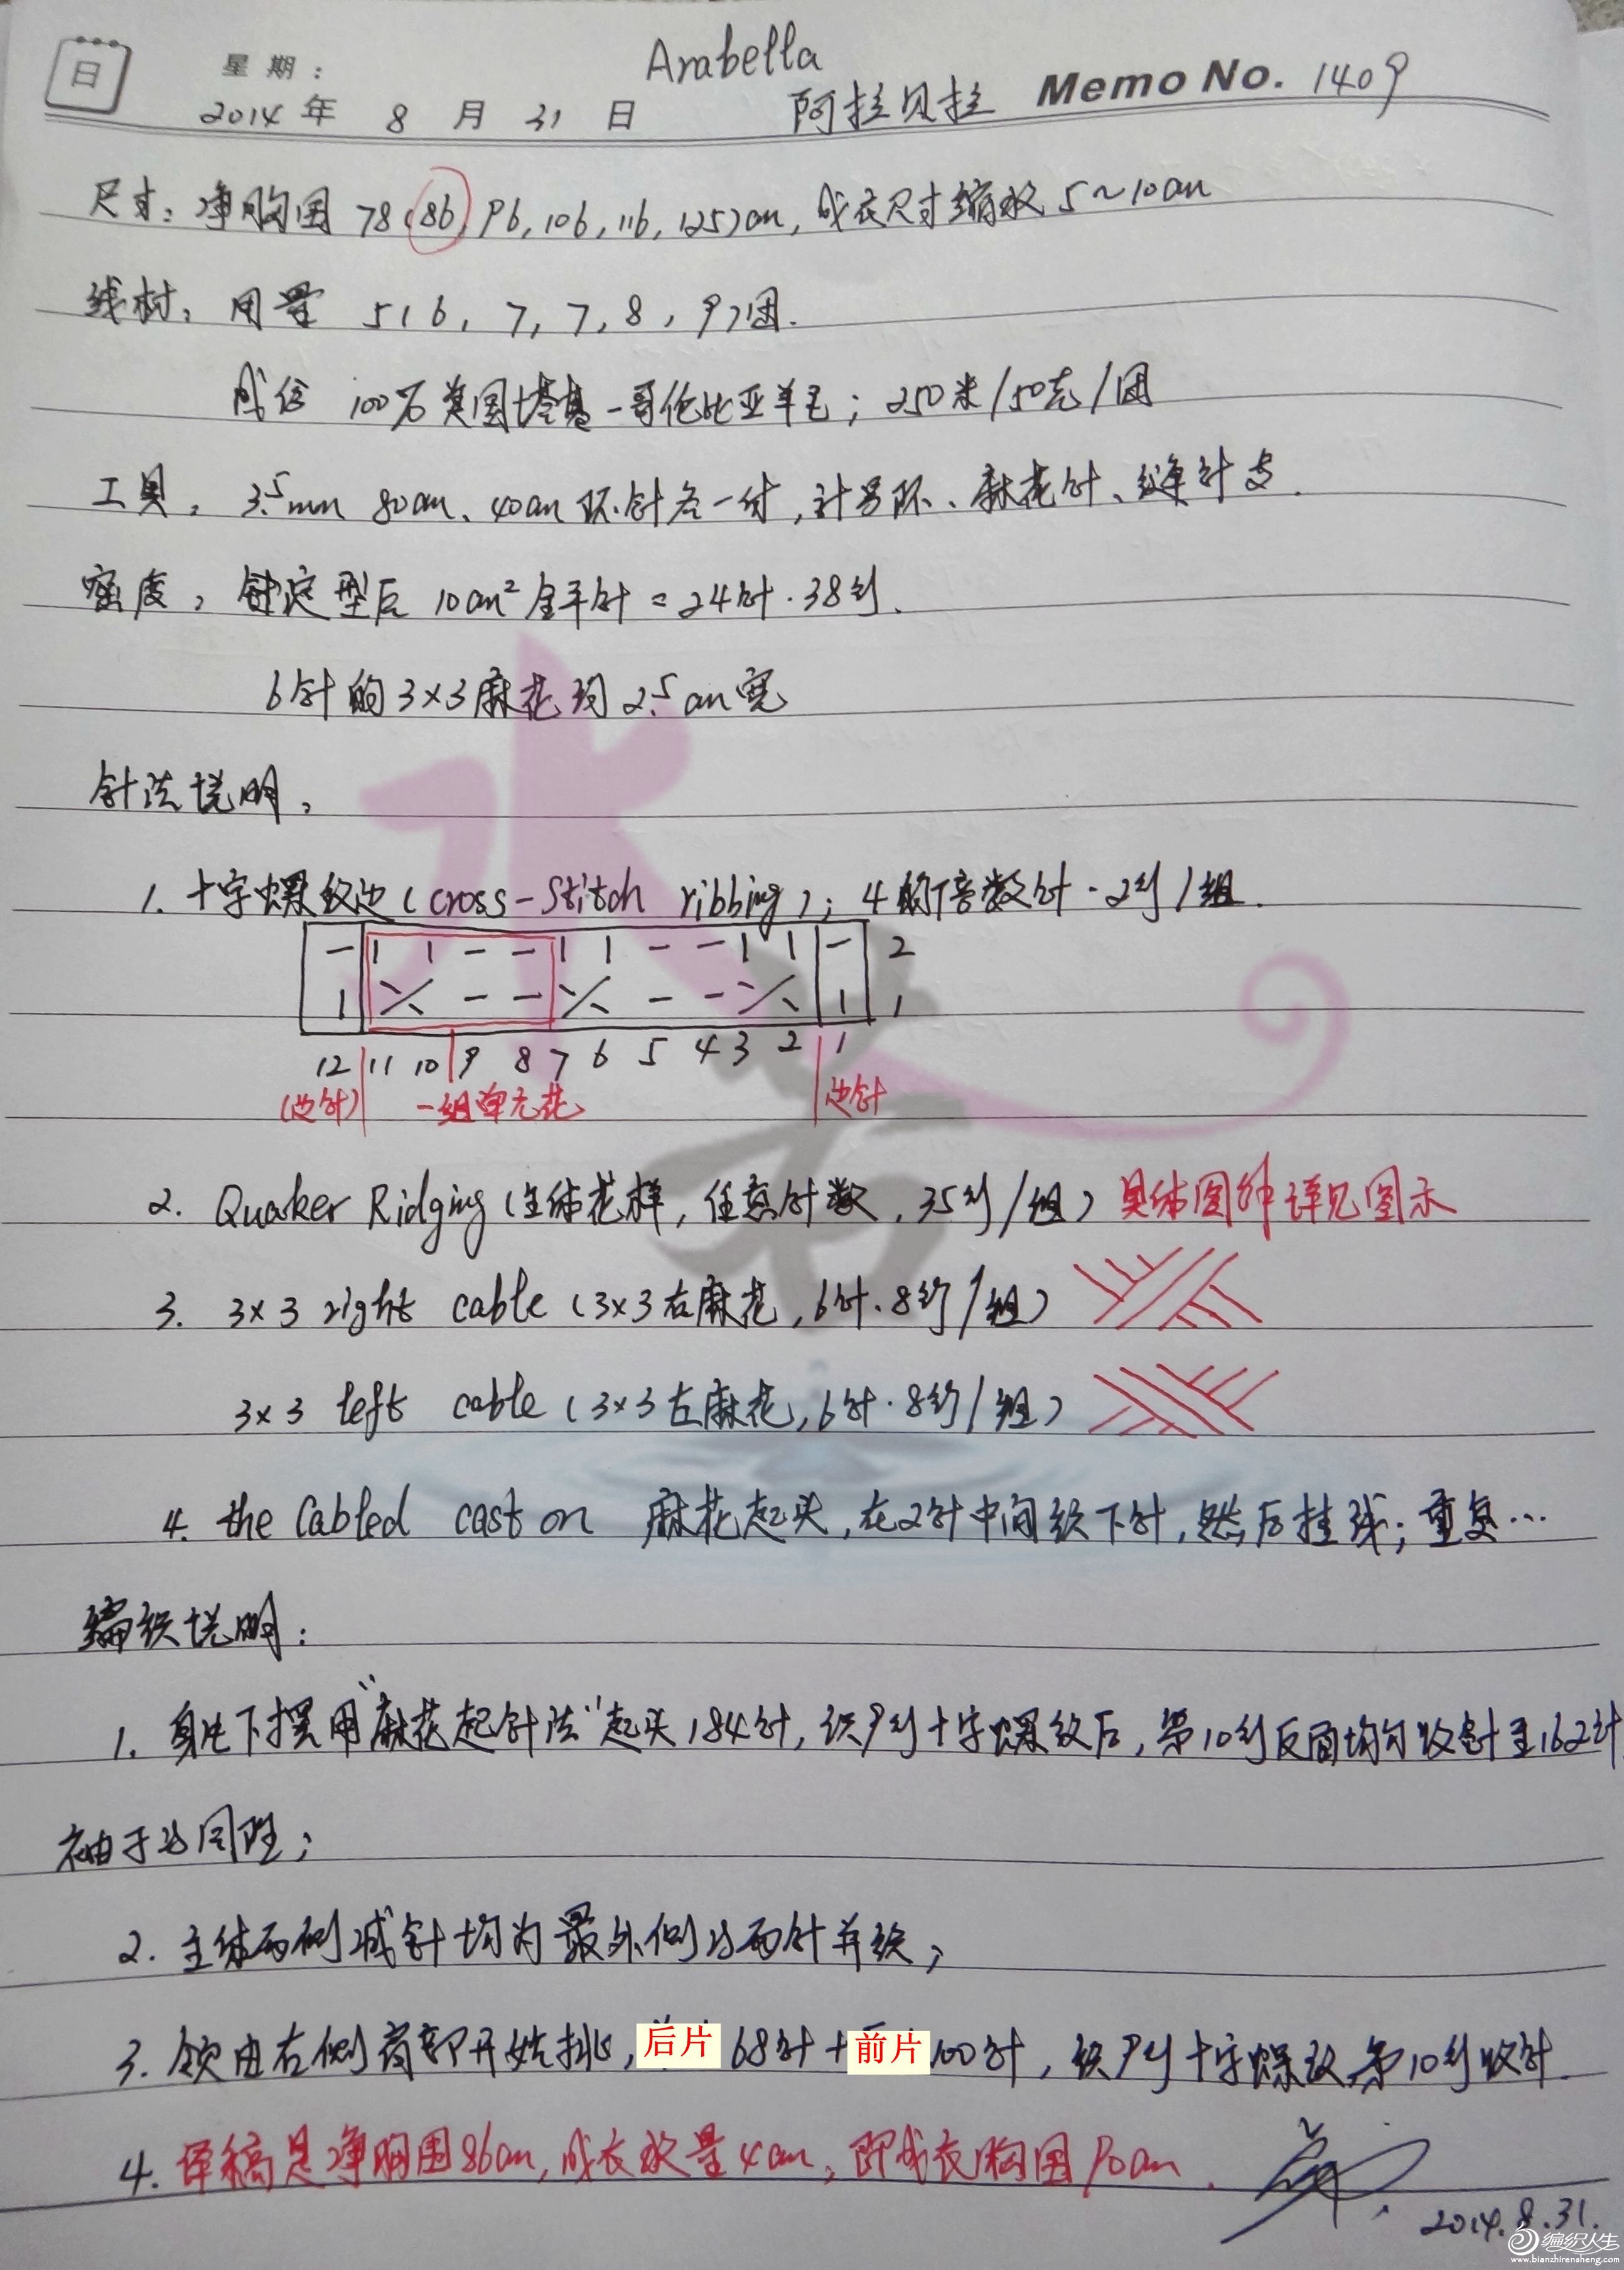 日
星期:
Arabella
2014年 8 月 31 日 阿拉贝拉 Memo No. 1409
尺寸:净胸围 78(86, 96, 106, 116, 125)cm, 成衣尺寸缩放 5~10cm
线材:用量 5(6, 7, 7, 8, 9)团.
成份 100%美国塔基-哥伦比亚羊毛; 250米/50克/团
工具: 3.5mm 80cm、40cm环针各一付,计号环、麻花针、缝针支.
密度:定型后 10cm² 全平针 = 24针·38行.
6针的3×3麻花约2.5cm宽
针法说明:
1. 十字螺纹边(cross-stitch ribbing); 4的倍数针·2行/组.
— | | — — | | — — | | — 2
| ⁒ — — ⁒ — — ⁒ | 1
12 11 10 9 8 7 6 5 4 3 2 1
(边针) 一组单元花 边针
2. Quaker Ridging (主体花样, 任意针数, 35行/组) 具体图解详见图示
3. 3×3 right cable (3×3右麻花, 6针·8行/组)
3×3 left cable (3×3左麻花, 6针·8行/组)
4. the Cabled cast on 麻花起头, 在2针中间织下针, 然后挂线; 重复…
编织说明:
1. 身片下摆用“麻花起针法”起头184针, 织9行十字螺纹后, 第10行反面均匀收针至162针
袖子也同理;
2. 主体两侧减针均为最外侧的两针并织;
3. 领由右侧肩部开始挑, 后片68针+前片100针, 织9行十字螺纹第10行收针.
4. 译稿是净胸围86cm, 成衣放量4cm, 即成衣胸围90cm.
2014.8.31.
编织人生
www.bianzhirensheng.com